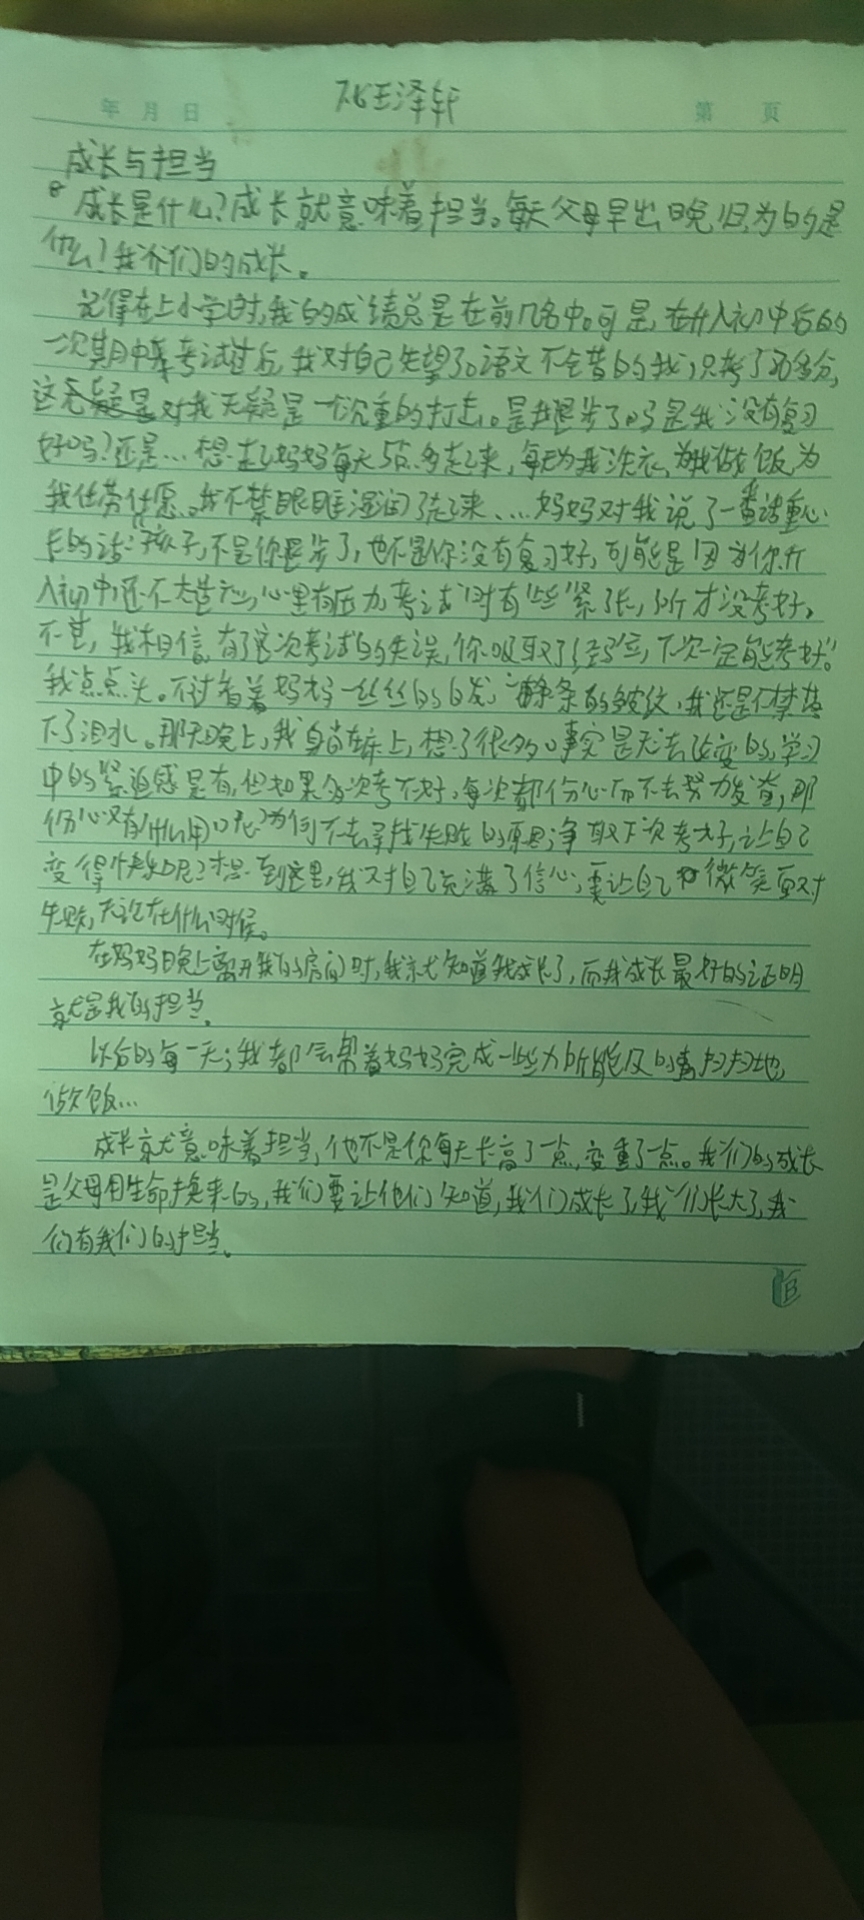 年 月 日 王泽轩 第 页
成长与担当
成长是什么?成长就意味着担当。每天父母早出晚归,为的是
什么?我们的成长。
记得在上小学时,我的成绩总是在前几名中。可是,在升入初中后的
一次期中考试过后,我对自己失望了。语文不会昔的我,只考了
这无疑是对我无疑是一沉重的打击。是我退步了吗是我没有复习
好吗?还是…想起妈妈每天5点多起来,每天为我洗衣,为我做饭,为
我任劳任怨。我不禁眼眶湿润了起来……妈妈对我说了一番语重心
长的话:孩子,不是你退步了,也不是你没有复习好,可能是因为你升
入初中,还不太适应,心里有压力,考试时有些紧张,所才没考好。
不过,我相信,有了这次考试的失误,你吸取了经验,下次一定能考好。"
我点点头。不过看着妈妈一丝丝的白发,一条条的皱纹,我还是不禁落
下了泪水。那天晚上,我躺在床上,想了很多。事实是无法改变的,学习
中的紧迫感是有,但如果多次考不好,每次都伤心而不去努力发奋,那
伤心又有什么用呢?为何不去寻找失败的原因,争取下次考好,让自己
变得快乐呢?想到这里,我对自己充满了信心,要让自己微笑面对
失败,无论在什么时候。
在妈妈晚上离开我的房间时,我就知道我成长了,而我成长最好的证明
就是我的担当。
以后的每一天,我都会帮着妈妈完成一些力所能及的事,扫扫地,
做饭…
成长就意味着担当,他不是你每天长高了一点,变重了一点。我们的成长
是父母用生命换来的,我们要让他们知道,我们成长了,我们长大了,我
们有我们的担当。